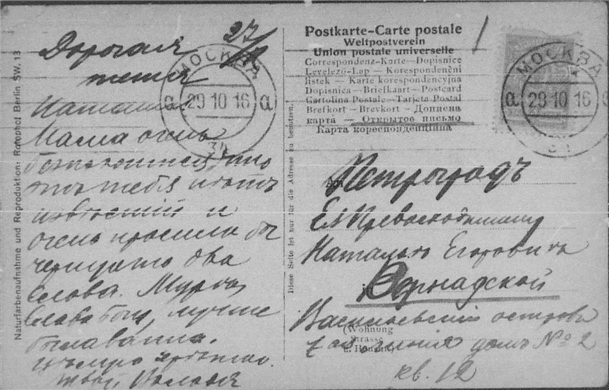 27/X
Дорогая
тетя
Наташа
Мама очень
безпокоится что
отъ тебя нѣтъ
извѣстій и
очень просила бы
черкнуть два
слова. Мурочкѣ
слава Богу, лучше
Твоя
МОСКВА
29 10 16
Postkarte-Carte postale
Weltpostverein
Union postale universelle
Correspondenz-Karte — Dopisnice
Levelező-Lap — Korespondenční
lístek — Karte korespondencyjna
Dopisnica — Briefkaart — Postcard
Cartolina Postale — Tarjeta Postal
Brefkort — Brevkort — Дописна
карта — Открытое письмо
Карта кореспонденційна
МОСКВА
29 10 16
Петроградъ
Ея Превосходительству
Натальѣ Егоровнѣ
in
Вернадской
Васильевскій островъ
7ая линія домъ № 2
кв. 12
(Wohnung
Strasse
u. Hausnr.)
Diese Seite ist nur für die Adresse zu benutzen.
Naturfarbenaufnahme und Reproduktion: Rotophot Berlin SW. 13